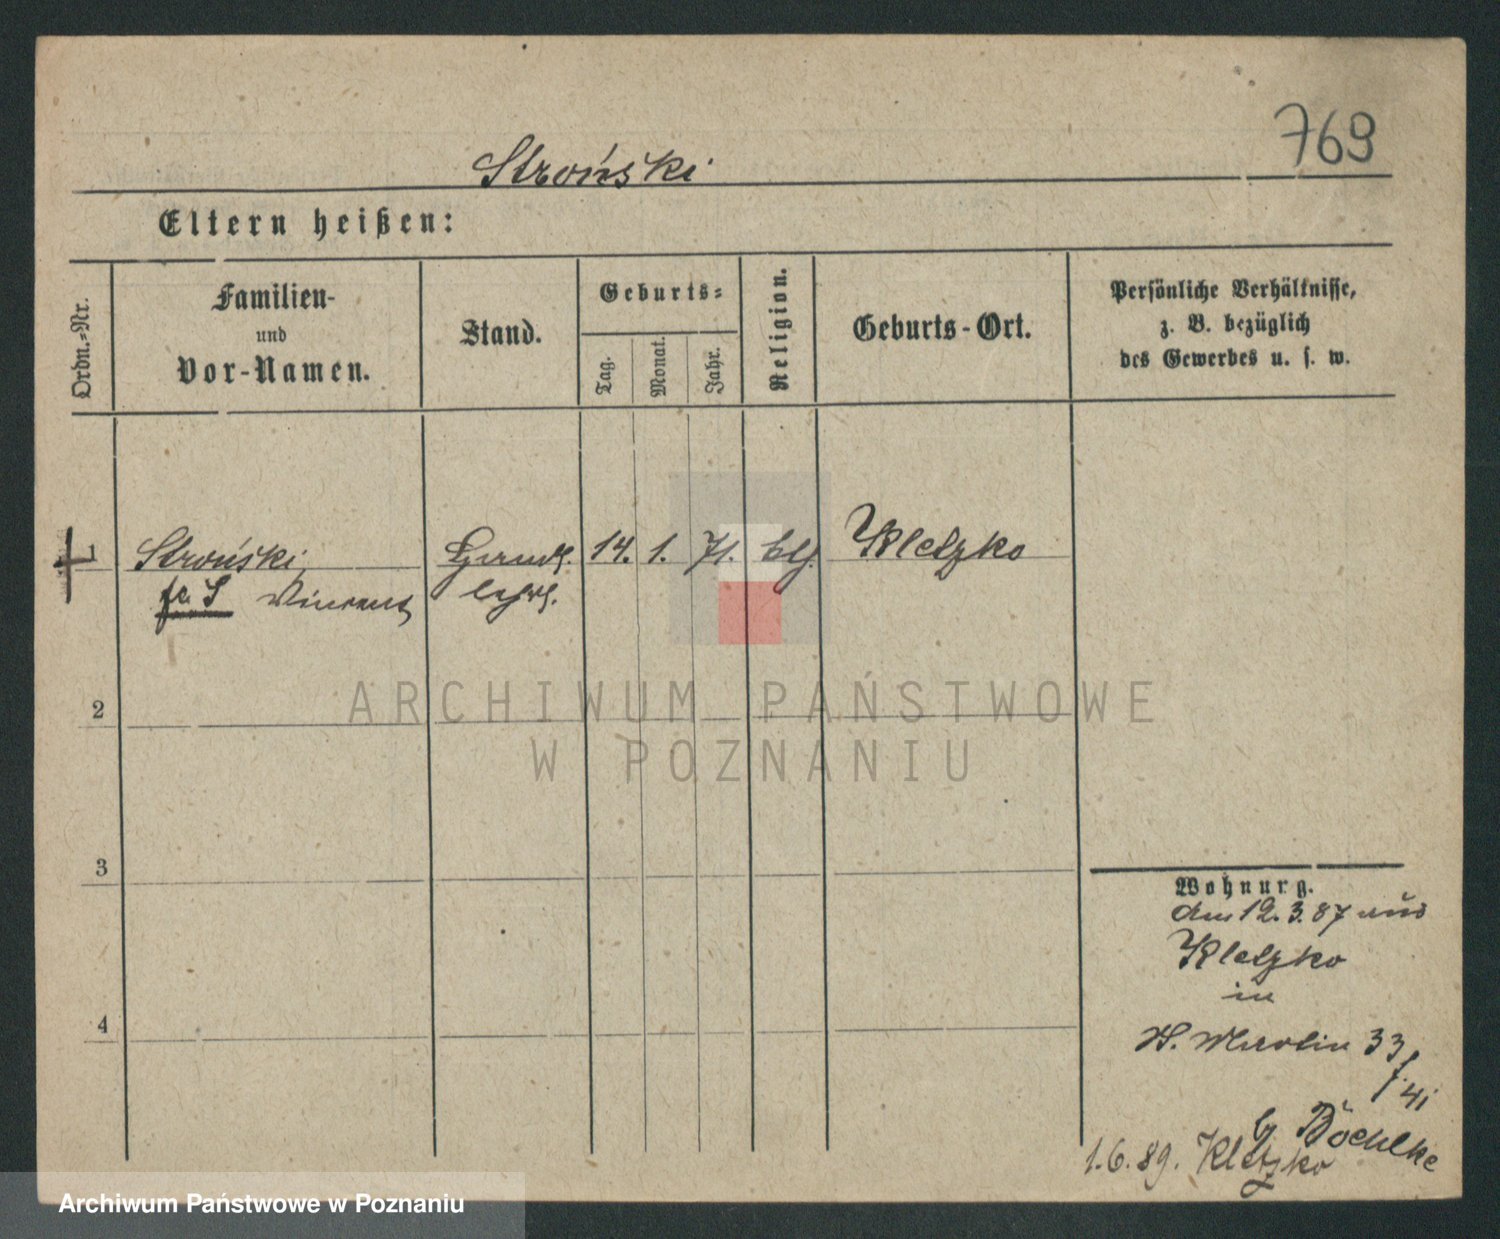 769
Stroński
Eltern heißen:
Ordn.-Nr.
Familien-
und
Vor-Namen.
Stand.
Geburts-
Tag.
Monat.
Jahr.
Religion.
Geburts-Ort.
Persönliche Verhältnisse,
z. B. bezüglich
des Gewerbes u. s. w.
1
Stroński, 14. 1. 71. Kletzko
Vincent
2
ARCHIWUM PAŃSTWOWE
W POZNANIU
3
4
Wohnung.
am 12.3.87 aus
Kletzko
in
St. Martin 33
b/ Böehlke
1.6.89. Kletzko
Archiwum Państwowe w Poznaniu